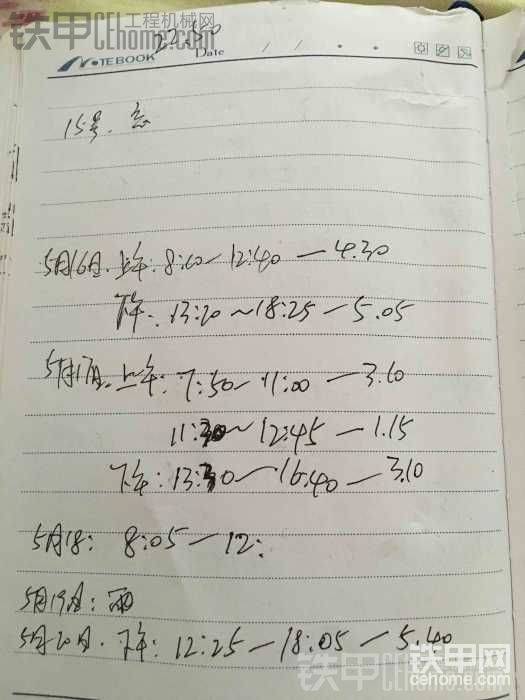 铁甲工程机械网
CEhome.com
NOTEBOOK Date / /
15号.
5月16日. 上午: 8:10—12:40—4.30
下午: 13:20~18:25—5.05
5月17日. 上午: 7:50—11:00—3.10
11:30~12:45—1.15
下午: 13:30—16.40—3.10
5月18: 8:05—12:
5月19日: 雨
5月20日. 下午: 12:25—18:05—5.40
铁甲网
cehome.com